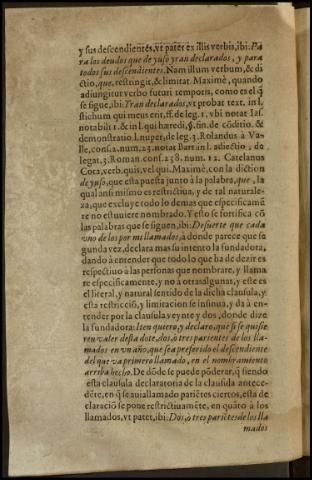 y sus descendientes, vt patet ex illis verbis, ibi: Pa
ra los deudos que de yuso yran declarados, y para
todos sus descendientes. Nam illum verbum, & di
ctio, que, restringit, & limitat. Maximè, quando
adiungitur verbo futuri temporis, como es el q̃
se sigue, ibi: Yran declarados, vt probat text. in l.
stichum qui meus erit, ff. de leg. 1. vbi notat Ias.
notabili 1. & in l. qui hæredi, §. fin. de cõditio. &
demonstratio. l. nuper, de leg. 3. Rolandus à Va-
lle, cons. 2. num. 23. notat Bart. in l. adiectio, de
legat. 3. Roman. cons. 238. num. 12. Catelanus
Cota, verb. quis, vel qui. Maximè, con la diction
de yuso, que esta puesta junto à la palabra, que, la
qual ansi mismo es restrictiua, y de tal naturale-
za, que excluye todo lo demas que especificamẽ
te no estuuiere nombrado. Y esto se fortifica cõ
las palabras que se siguen, ibi: De suerte que cada
vno de los por mi llamados, à donde parece que se
gunda vez, declara mas su intento la fundadora,
dando à entender que todo lo que ha de dezir es
respectiuo à las personas que nombrare, y llama
re especificamente, y no à otras algunas, y este es
el literal, y natural sentido de la dicha clausula, y
esta restricciõ, y limitacion se insinua, y da à en-
tender por la clausula veynte y dos, donde dize
la fundadora: Iten quiero, y declaro, que si se quisie
ren valer desta dote, dos, ò tres parientes de los lla-
mados en vn año, que sea preferido el descendiente
del que va primero llamado, en el nombramiento
arriba hecho. De dõde se puede põderar, q̃ siendo
esta clausula declaratoria de la clausula antece-
dẽte, en q̃ se auia llamado pariẽtes ciertos, esta de
claraciõ se pone restrictiuamẽte, en quãto à los
llamados, vt patet, ibi: Dos, ò tres pariẽtes de los lla
mados